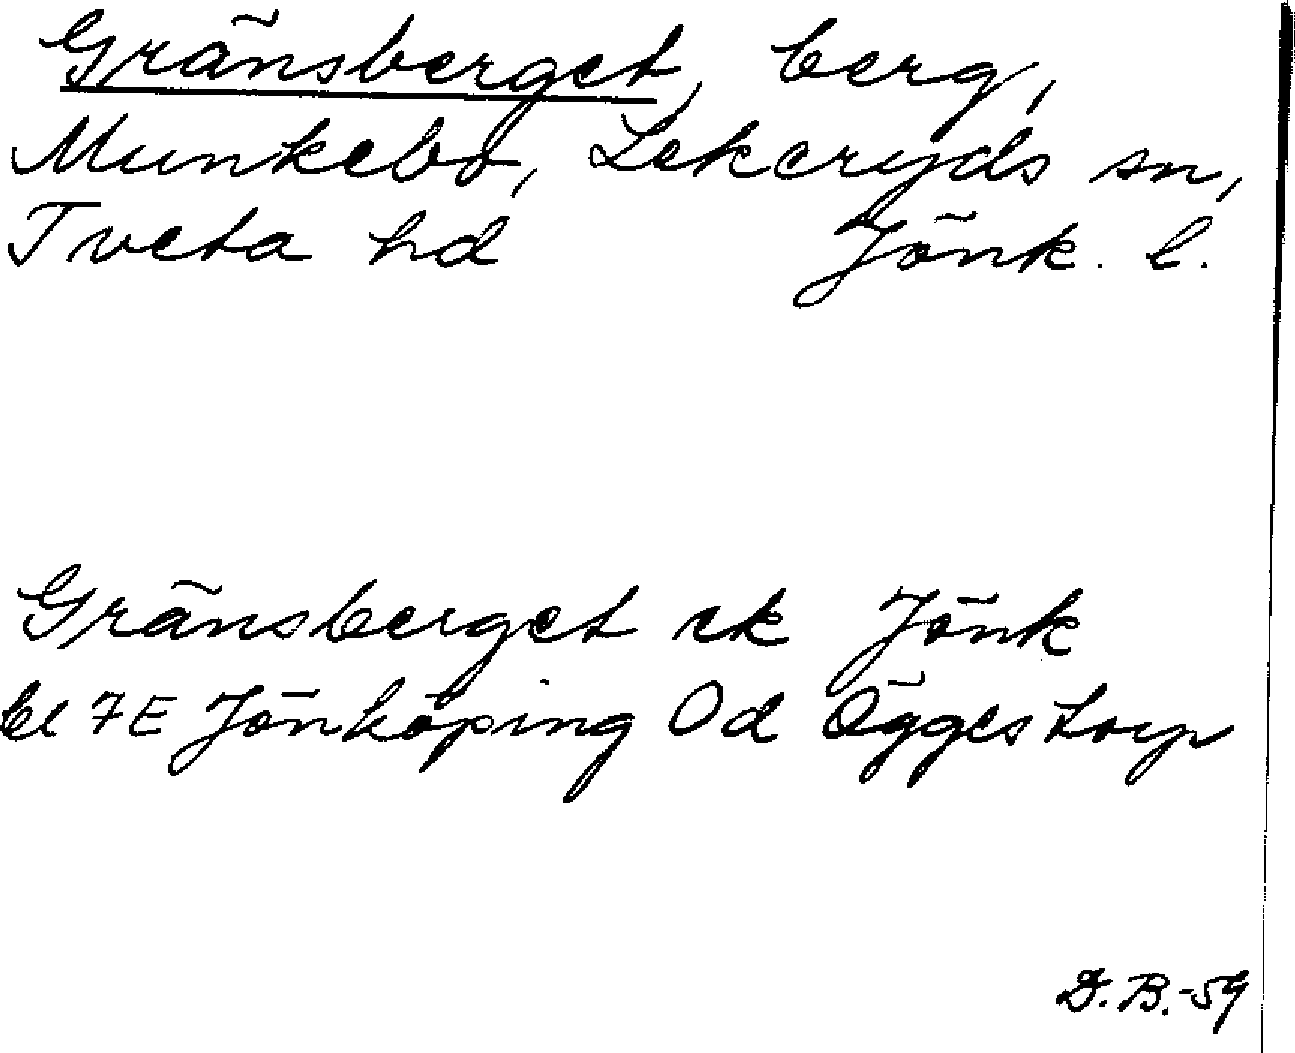 Gränsberget, berg,
Munkebo, Lekeryds sn,
Tveta hd Jönk. l.
Gränsberget ek Jönk
bl 7E Jönköping Od Öggestorp
D.B.-59